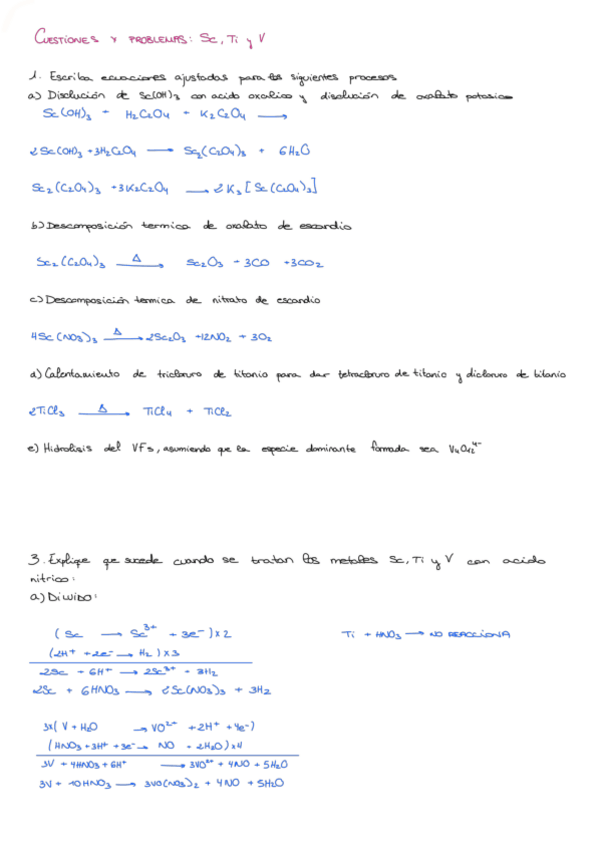 CUESTIONES Y PROBLEMAS: Sc, Ti y V
1. Escriba ecuaciones ajustadas para los siguientes procesos
a) Disolución de Sc(OH)3 con acido oxalico y disolución de oxalato potasico
Sc(OH)3 + H2C2O4 + K2C2O4 →
2Sc(OH)3 + 3H2C2O4 → Sc2(C2O4)3 + 6H2O
Sc2(C2O4)3 + 3K2C2O4 → 2K3[Sc(C2O4)3]
b) Descomposición termica de oxalato de escandio
Sc2(C2O4)3 —Δ→ Sc2O3 + 3CO + 3CO2
c) Descomposición termica de nitrato de escandio
4Sc(NO3)3 —Δ→ 2Sc2O3 + 12NO2 + 3O2
d) Calentamiento de tricloruro de titanio para dar tetracloruro de titanio y dicloruro de titanio
2TiCl3 —Δ→ TiCl4 + TiCl2
e) Hidrolisis del VF5, asumiendo que la especie dominante formada sea V4O12^4-
3. Explique que sucede cuando se tratan los metales Sc, Ti y V con acido
nitrico:
a) Diluido:
(Sc → Sc^3+ + 3e-) x2
Ti + HNO3 → NO REACCIONA
(2H+ + 2e- → H2) x3
2Sc + 6H+ → 2Sc^3+ + 3H2
2Sc + 6HNO3 → 2Sc(NO3)3 + 3H2
3x( V + H2O → VO^2+ + 2H+ + 4e-)
(HNO3 + 3H+ + 3e- → NO + 2H2O) x4
3V + 4HNO3 + 6H+ → 3VO^2+ + 4NO + 5H2O
3V + 10HNO3 → 3VO(NO3)2 + 4NO + 5H2O